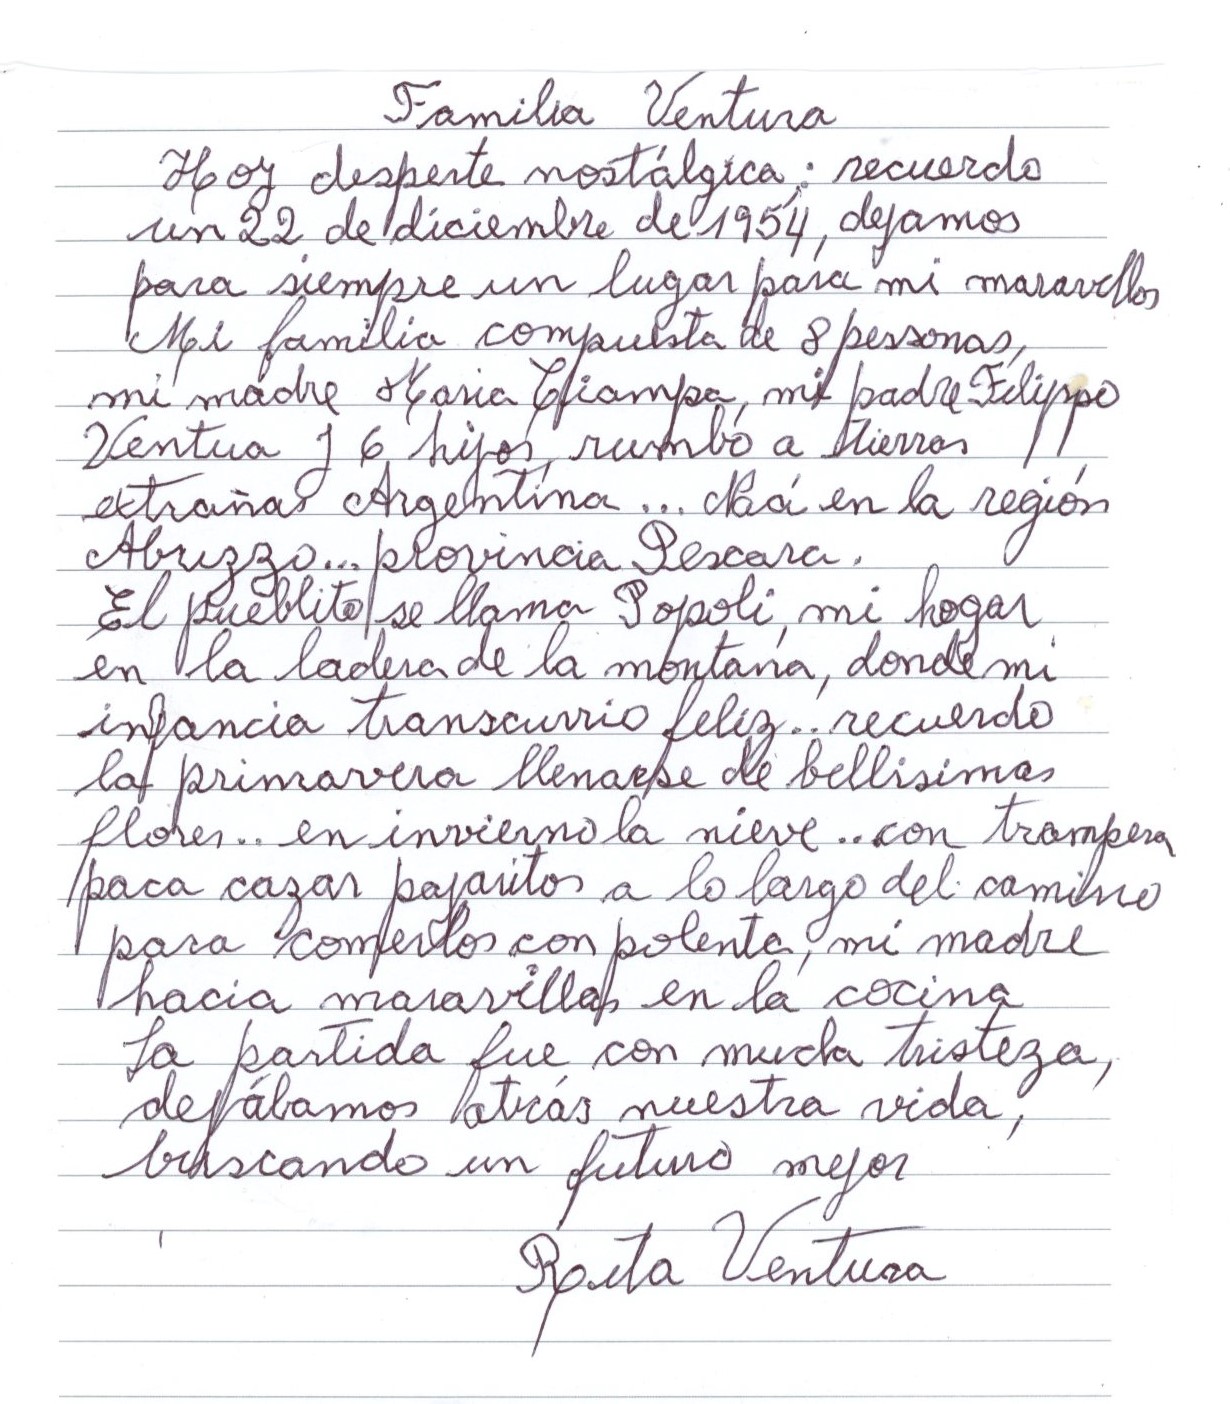 Familia Ventura
Hoy desperte nostálgica; recuerdo
un 22 de diciembre de 1954, dejamos
para siempre un lugar para mi maravillos
Mi familia compuesta de 8 personas,
mi madre Maria Ciampa, mi padre Filippo
Ventua y 6 hijos, rumbó a tierras
extrañas Argentina... allá en la región
Abruzzo... provincia Pescara.
El pueblito se llama Popoli, mi hogar
en la ladera de la montaña, donde mi
infancia transcurrio feliz.. recuerdo
la primavera llenarse de bellisimas
flores.. en invierno la nieve.. con trampera
para cazar pajaritos a lo largo del camino
para comerlos con polenta, mi madre
hacia maravillas en la cocina
La partida fue con mucha tristeza,
dejábamos atrás nuestra vida,
buscando un futuro mejor
Rita Ventura